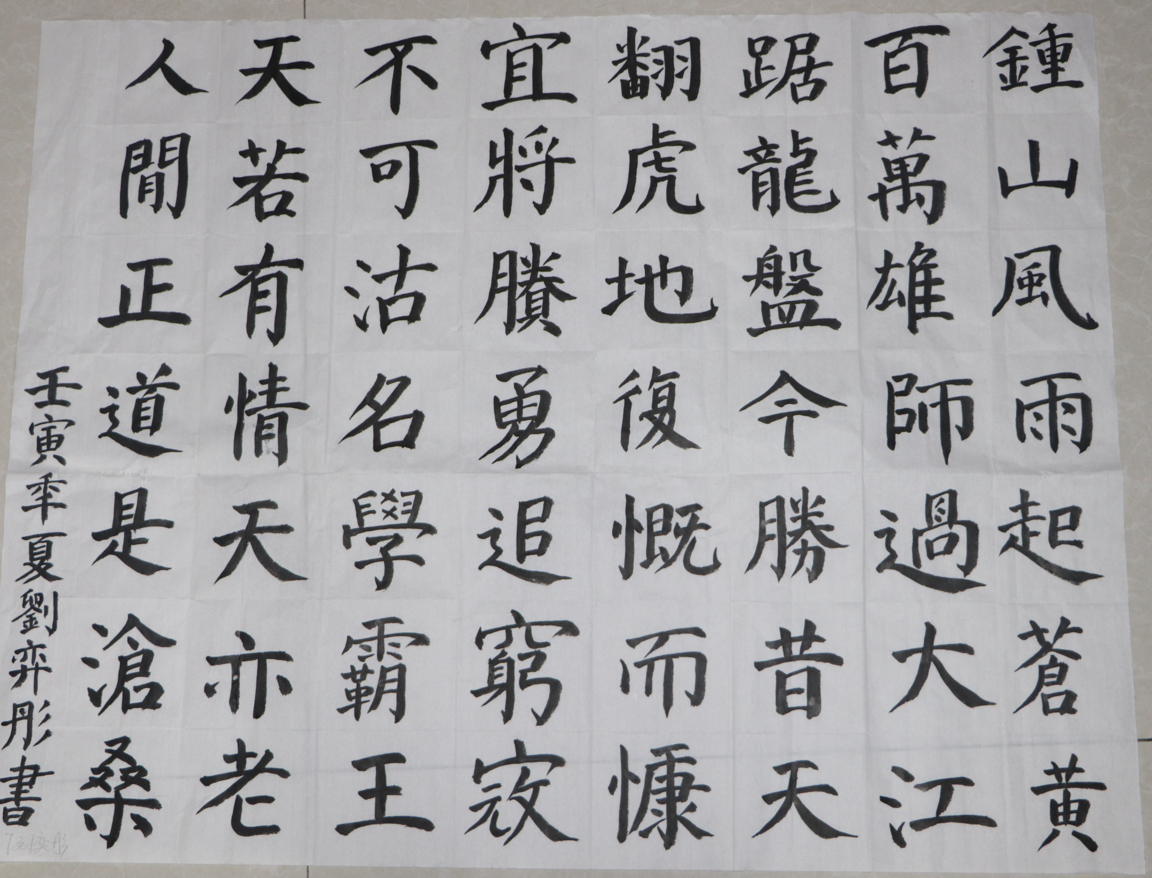 鍾山風雨起蒼黄
百萬雄師過大江
踞龍盤今勝昔天
翻虎地復慨而慷
宜將賸勇追窮寇
不可沽名學霸王
天若有情天亦老
人間正道是滄桑
壬寅年夏劉弈彤書